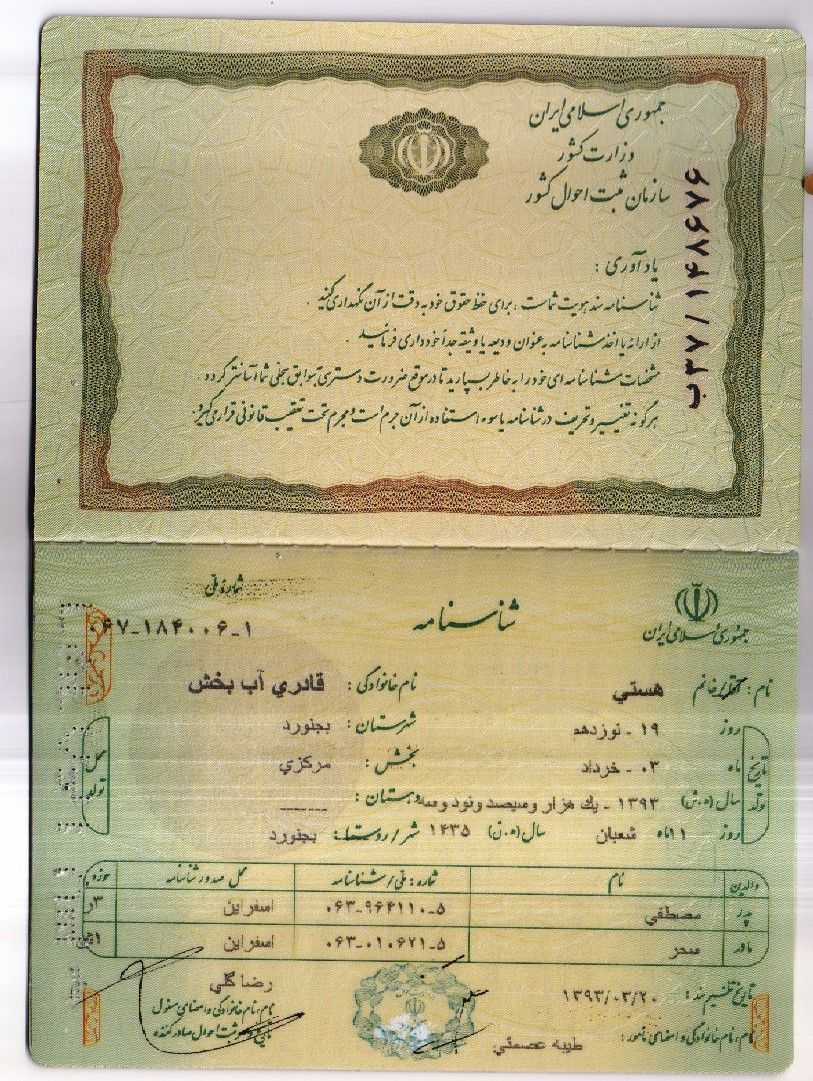 جمهوری اسلامی ایران
وزارت کشور
سازمان ثبت احوال کشور
ب۳۷/۱۴۸۶۷۶
یادآوری :
شناسنامه سند هویت شماست ، برای حفظ حقوق خود به دقت از آن نگهداری کنید .
از ارائه یا اخذ شناسنامه به عنوان ودیعه یا وثیقه جداً خودداری فرمائید .
مشخصات شناسنامه ای خود را به خاطر بسپارید تا در موقع ضرورت دسترسی به سوابق سجلی شما آسانتر گردد .
هرگونه تغییر و تحریف در شناسنامه یا سوء استفاده از آن جرم است و مجرم تحت تعقیب قانونی قرار می‌گیرد .
شماره ملی
۰۶۷-۱۸۴۰۰۶-۱
شناسنامه
جمهوری اسلامی ایران
نام : آقا/خانم هستي نام خانوادگی : قادري آب بخش
تاریخ تولد
روز ۱۹ - نوزدهم شهرستان : بجنورد
ماه ۰۳ - خرداد بخش : مركزي
سال (ه.ش) ۱۳۹۳ - يك هزار وسيصد ونود وسه دهستان : ------
روز ۱۱ ماه شعبان سال (ه.ق) ۱۴۳۵ شهر/روستا : بجنورد
محل تولد
والدین نام شماره : ملی/شناسنامه محل صدور شناسنامه حوزه
پدر مصطفي ۰۶۳-۹۶۴۱۱۰-۵ اسفراين ۳ر
مادر سحر ۰۶۳-۰۱۰۶۲۱-۵ اسفراين
تاریخ تنظیم سند : ۱۳۹۳/۰۳/۲۰
نام، نام خانوادگی و امضای مامور : طيبه عصمتي
رضا گلي
نام، نام خانوادگی و امضای مسئول
ثبت احوال صادرکننده